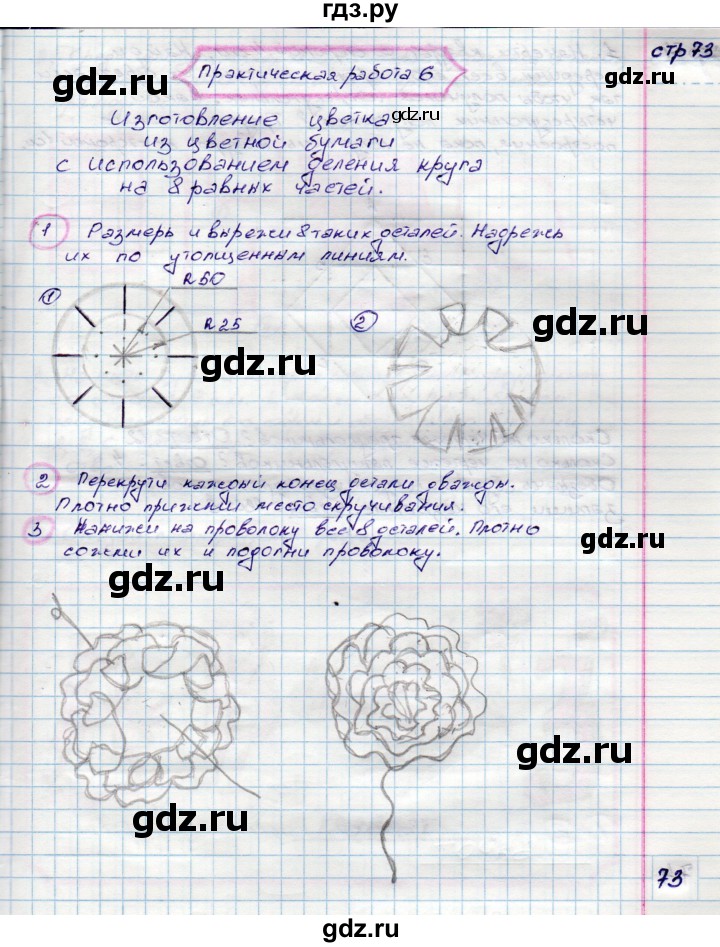 гдз.ру
стр 73
Практическая работа 6
Изготовление цветка
из цветной бумаги
с использованием деления круга
на 8 равных частей.
1 Размерь и вырежи 8 таких деталей. Надрежь
их по утолщенным линиям.
1
R 50
R 25
2
gdz.ru
gdz.ru
gdz.ru
2 Перекрути каждый конец детали дважды.
Плотно прижми место скручивания.
gdz.ru
3 Нанижи на проволоку все 8 деталей. Плотно
сожми их и подогни проволоку.
gdz.ru
gdz.ru
gdz.ru
gdz.ru
73
gdz.ru